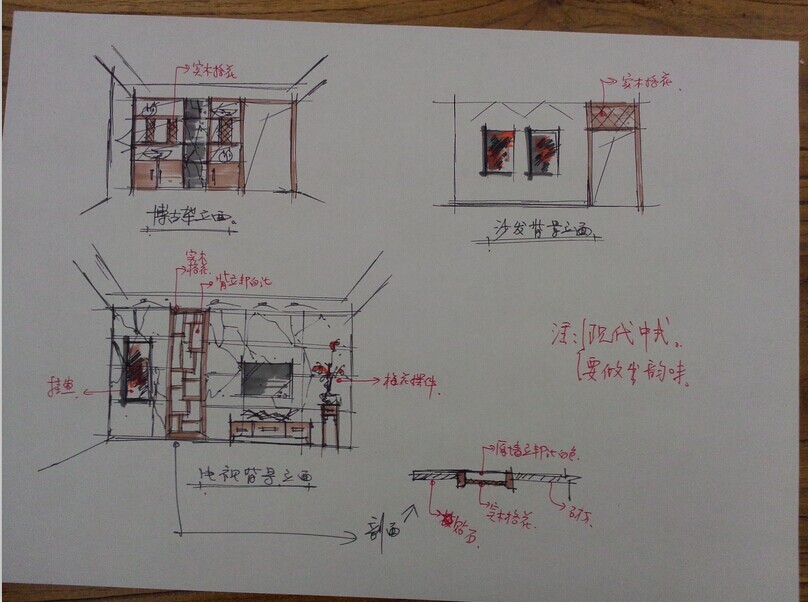 实木格花
实木格花
博古架立面
沙发背景立面
实木
格花
背立邦白池
注: 现代中式。
要做出韵味。
挂画
插花摆件
电视背景立面
剖面
原墙立邦池白色
实木格花